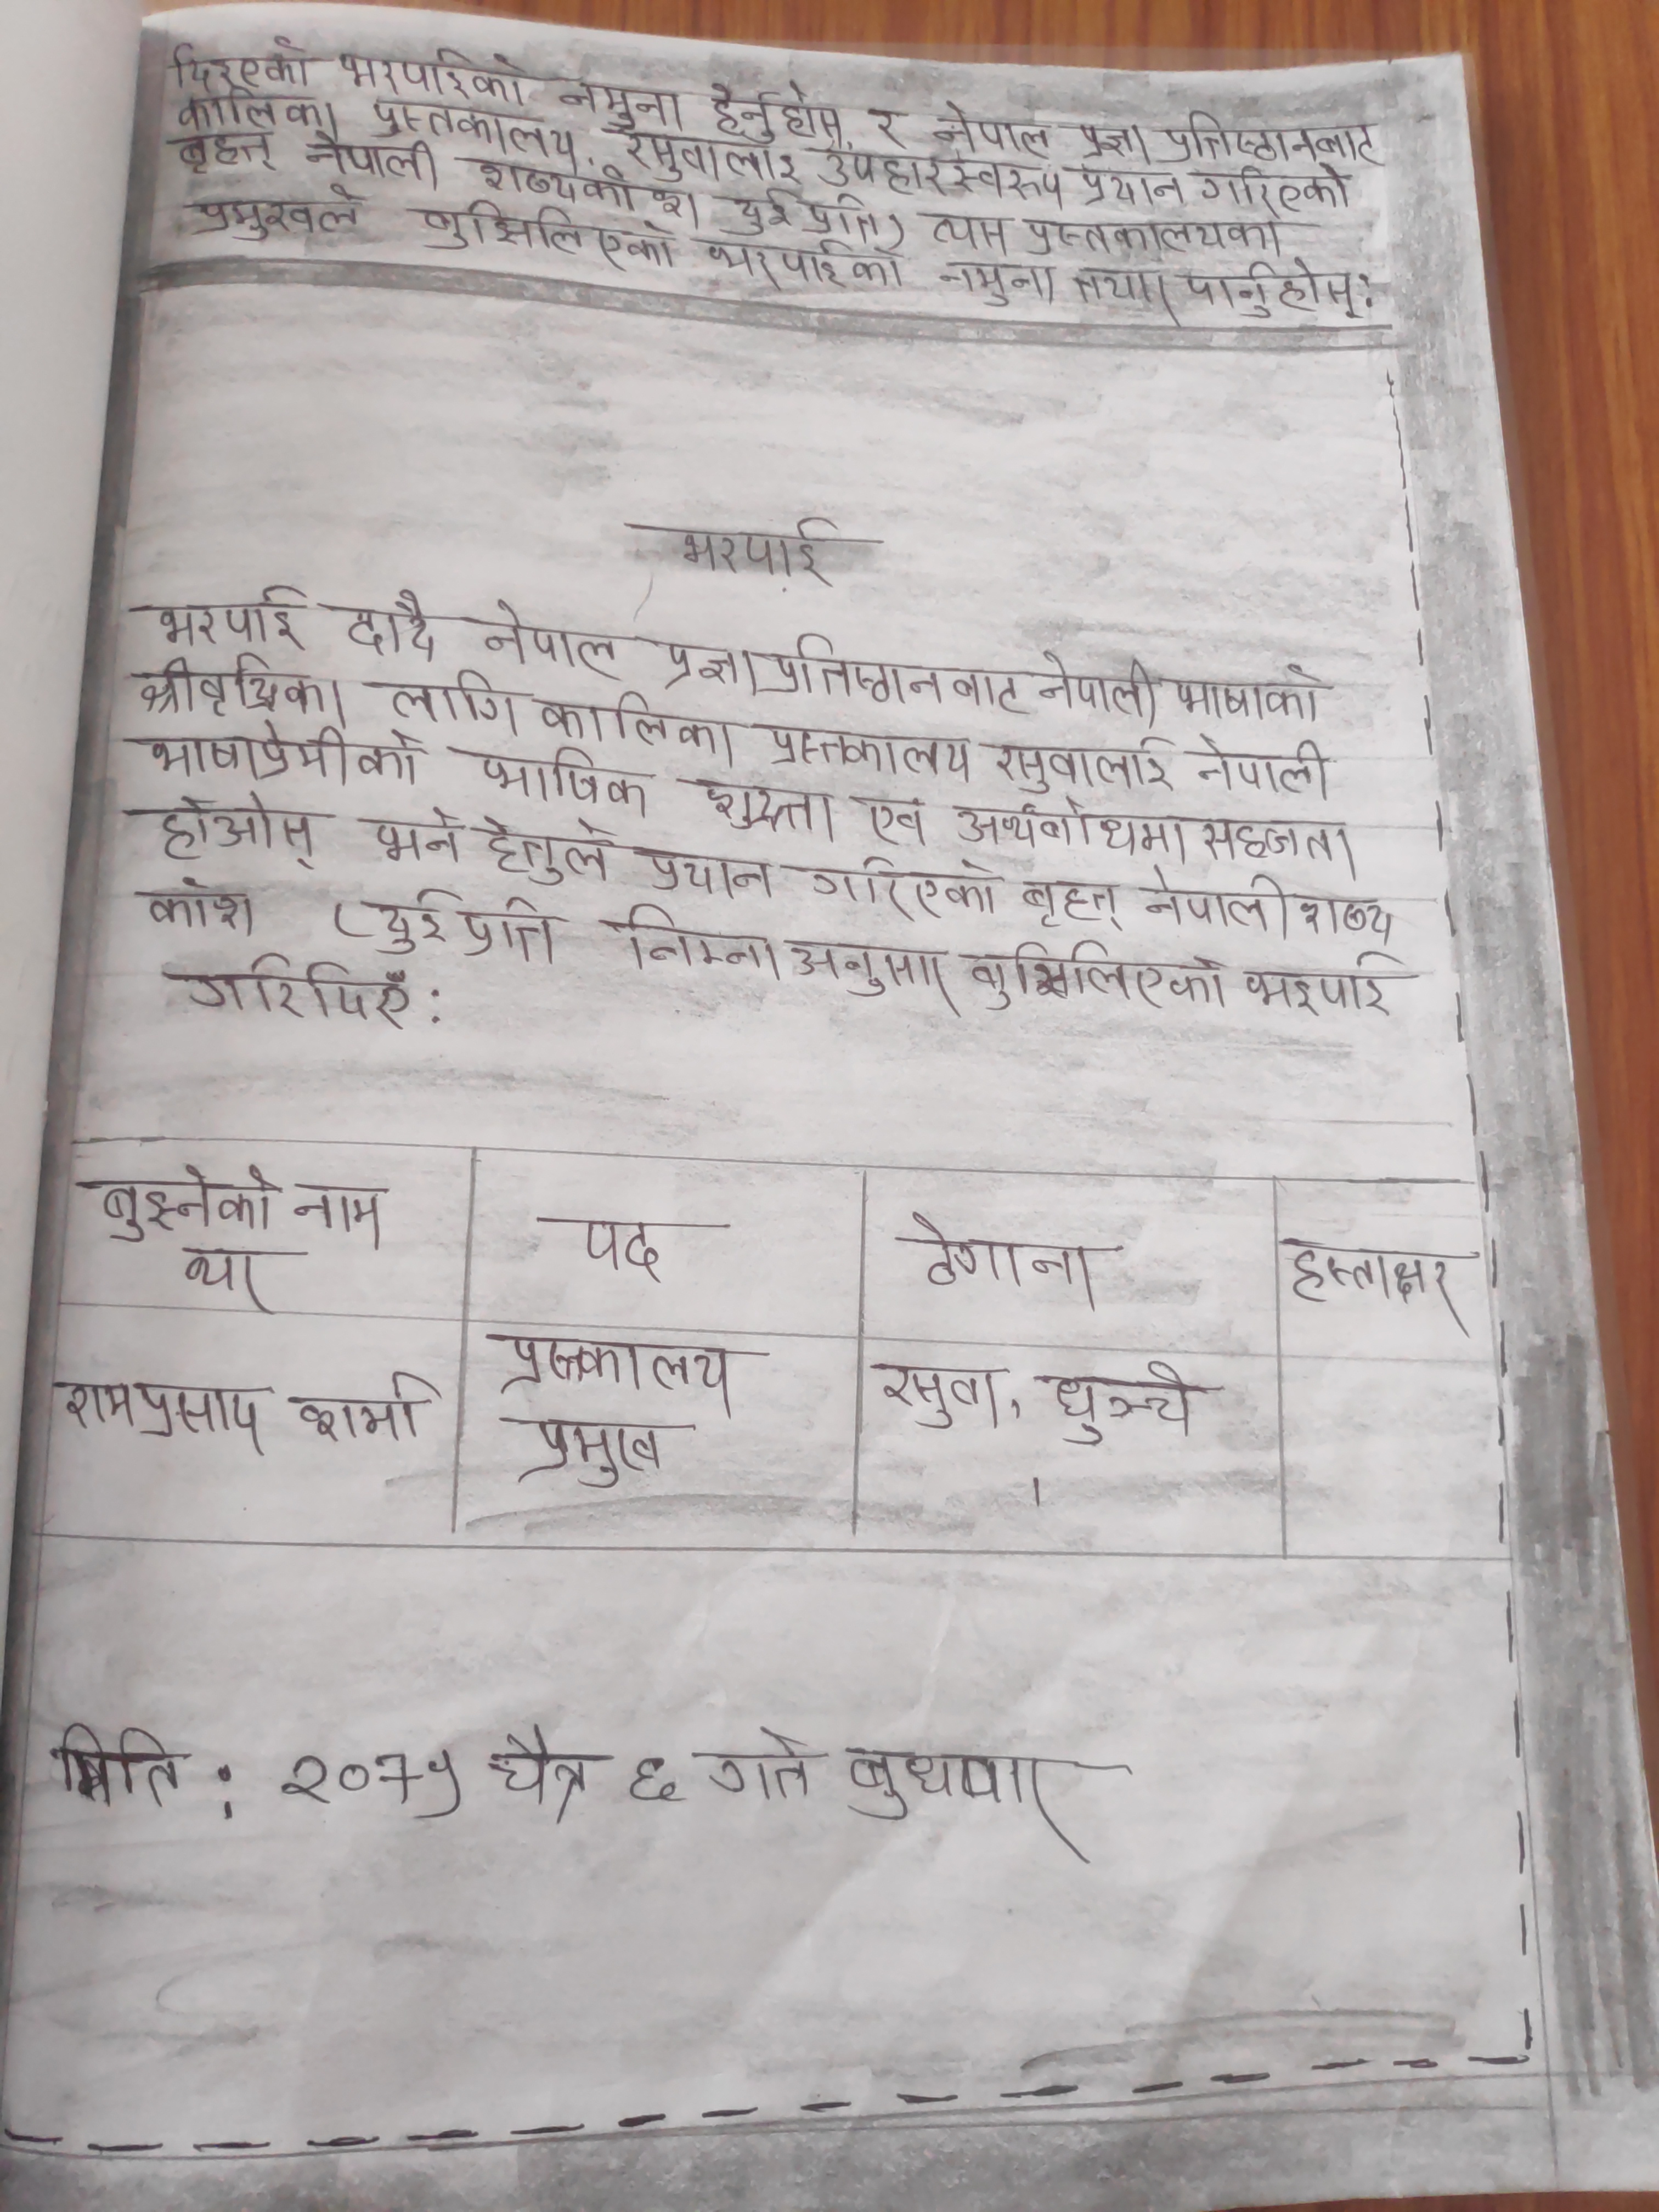 दिइएको भरपाईको नमुना हेर्नुहोस् र नेपाल प्रज्ञा प्रतिष्ठानबाट
कालिका पुस्तकालय, रसुवालाई उपहारस्वरूप प्रदान गरिएको
बृहत् नेपाली शब्दकोश दुईप्रति) त्यस पुस्तकालयका
प्रमुखले बुझिलिएको भरपाईको नमुना तयार पार्नुहोस्:
भरपाई
भरपाई दादै नेपाल प्रज्ञा प्रतिष्ठानबाट नेपाली भाषाको
श्रीवृद्धिका लागि कालिका पुस्तकालय रसुवालाई नेपाली
भाषाप्रेमीको भाषिक शुद्धता एवं अर्थबोधमा सहजता
होओस् भने हेतुले प्रदान गरिएको बृहत् नेपाली शब्द
कोश (दुईप्रति निम्ना अनुसार बुझिलिएको भइपाई
गरिदिएँ:
बुझ्नेको नाम
थर
पद
ठेगाना
हस्ताक्षर
रामप्रसाद शर्मा
पुस्तकालय
प्रमुख
रसुवा, धुन्चे
मिति: २०७५ चैत्र ६ गते बुधवार